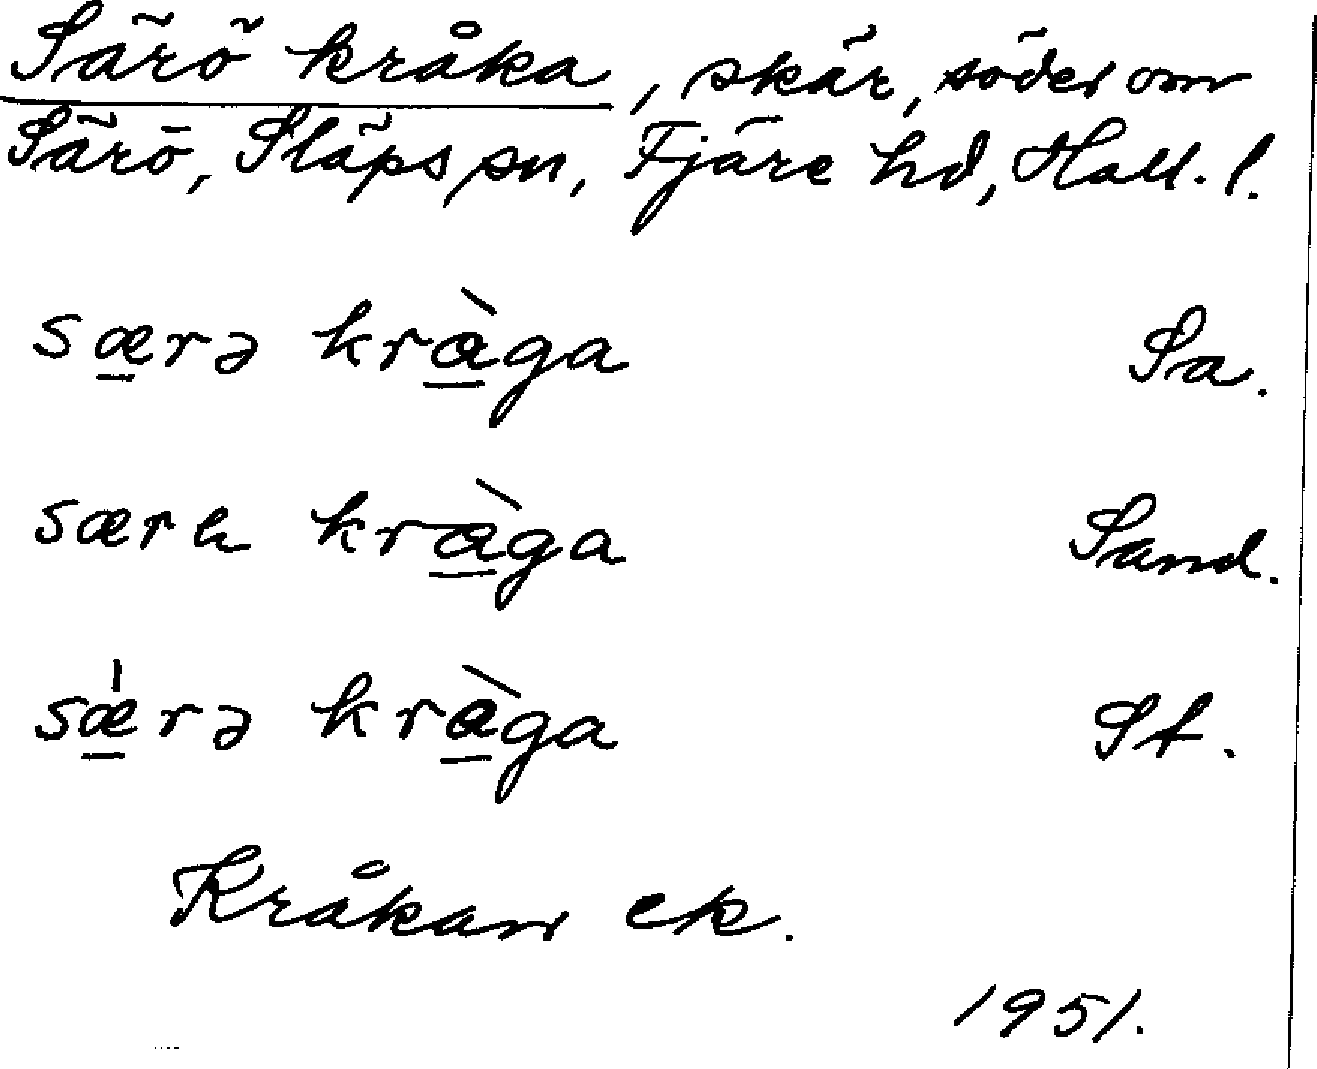 Särö kråka, skär, söder om
Särö, Släps sn, Fjäre hd, Hall. l.
sæ̲rə krà̲ga Sa.
særa krà̲ga Sand.
sǽ̲rə krà̲ga St.
Kråkan ek.
1951.